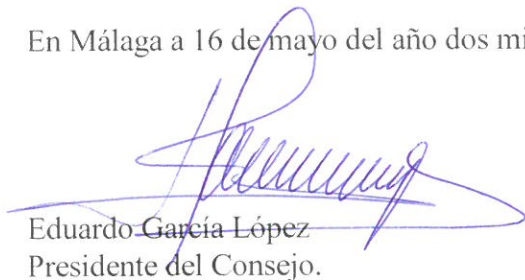 En Málaga a 16 de mayo del año dos mi
Eduardo García López
Presidente del Consejo.